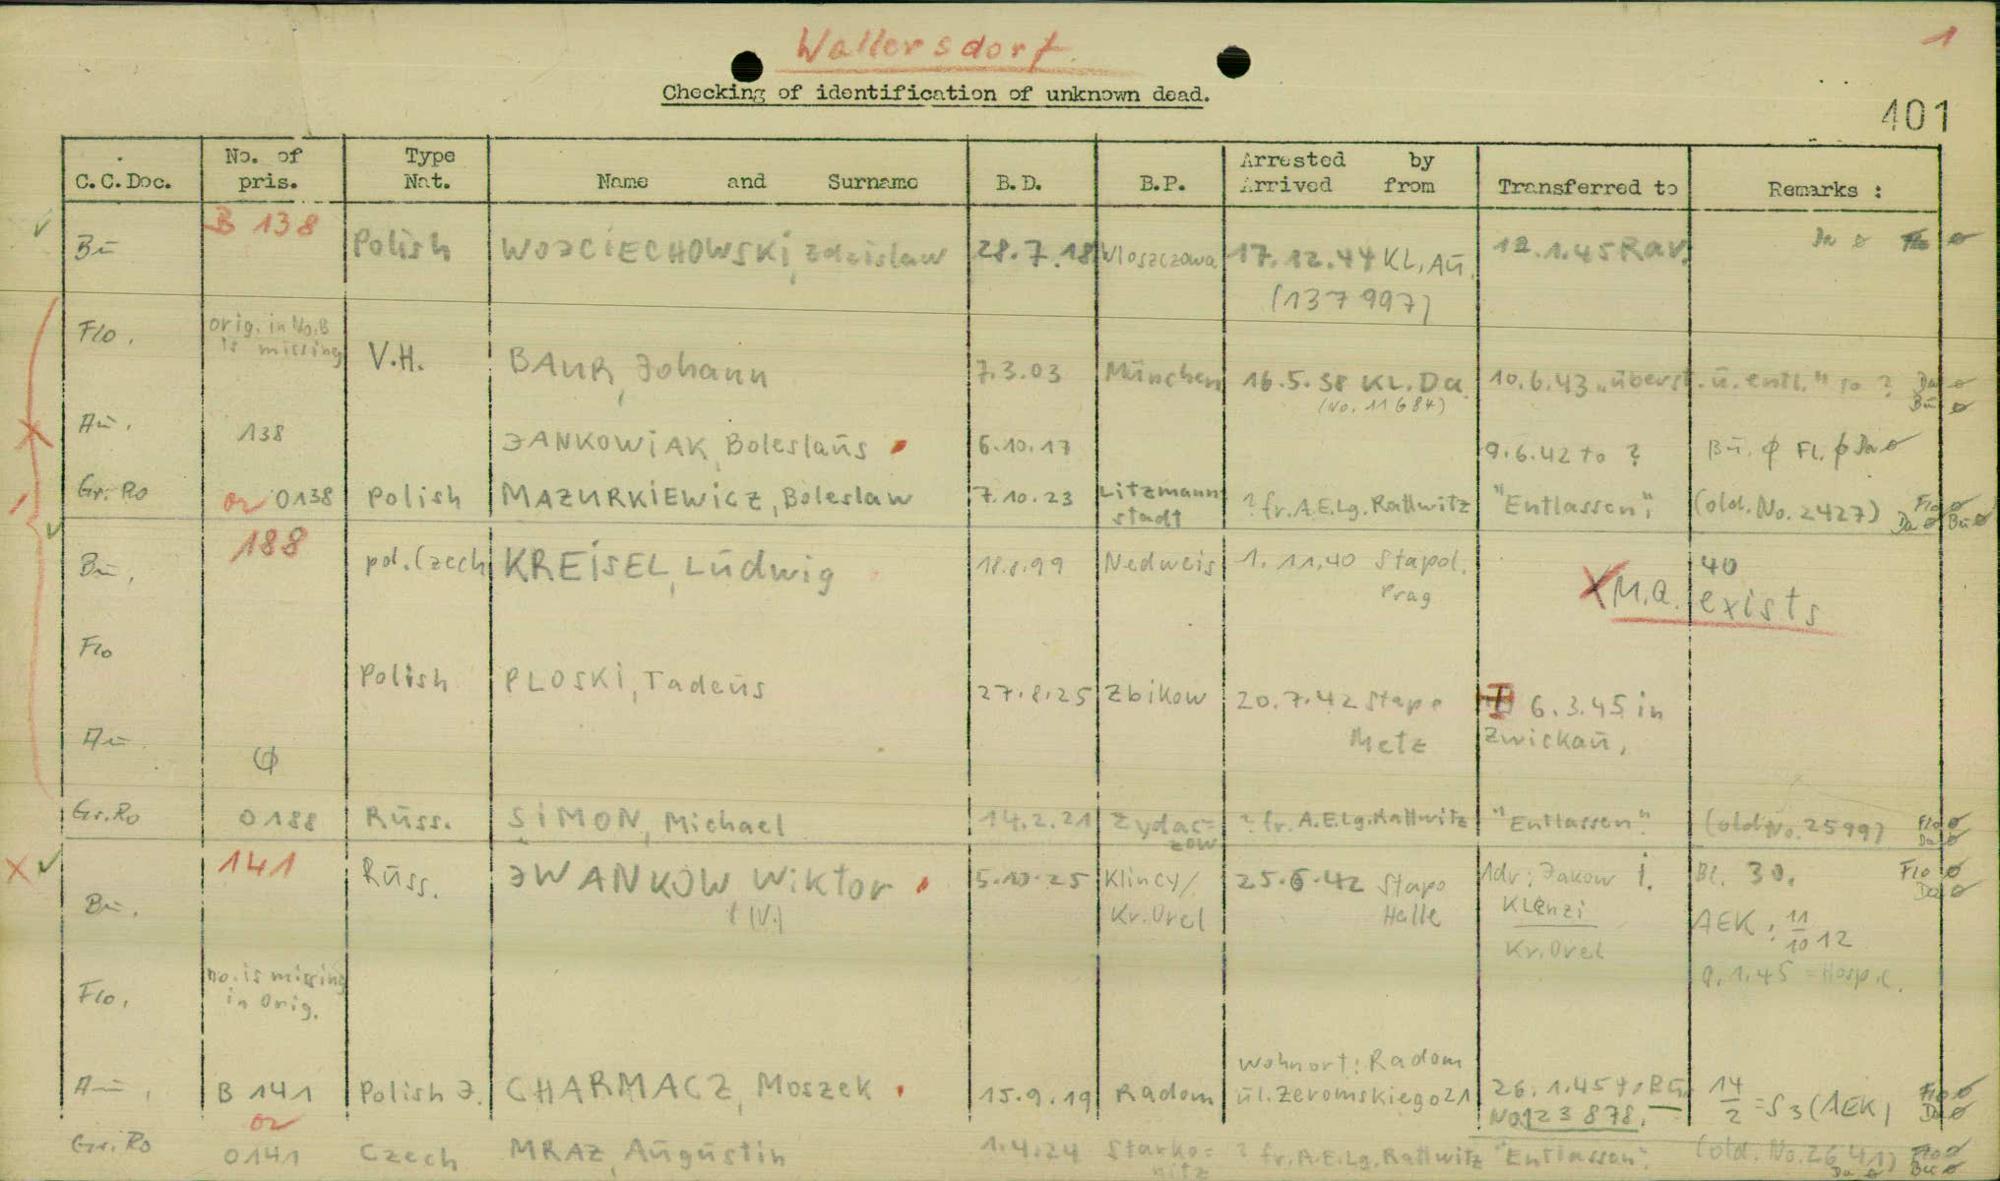 Wallersdorf
1
Checking of identification of unknown dead.
401
C.C.Doc. No. of pris. Type Nat. Name and Surname B.D. B.P. Arrested by Arrived from Transferred to Remarks :
B 138
Bū Polish WOJCIECHOWSKI, Zdzislaw 28.7.18 Wloszczowa 17.12.44 KL. Aū. 12.1.45 Rav. Da ø
(137 997)
Flo. orig. in No. B is missing V.H. BAUR, Johann 7.3.03 München 16.5.38 KL. Da. 10.6.43 "überst. ü. entl." to ? Da ø
(No. 11684) Bū ø
Aū. 138 JANKOWIAK, Boleslaūs 6.10.17 9.6.42 to ? Bū. ø Fl. ø Da ø
Gr. Ro or 0138 Polish MAZURKIEWICZ, Boleslaw 7.10.23 Litzmannstadt ? fr. A.E.Lg. Rattwitz "Entlassen", (old. No. 2427) Flo ø
Da ø Bū ø
188
Bū, pol. Czech KREISEL, Lūdwig 18.8.99 Nedweis 1.11.40 Stapol. Prag 40
X M.Q. exists
Flo Polish PLOSKI, Tadeūs 27.8.25 Zbikow 20.7.42 Stapo Metz 6.3.45 in Zwickaū,
Aū. ø
Gr. Ro 0188 Rūss. SIMON, Michael 14.2.21 Zydac=zow ? fr. A.E.Lg. Rattwitz "Entlassen". (old No. 2599) Flo ø
Da ø
141
Bū. Rūss. JWANKOW Wiktor 5.10.25 Klincy/ Kr. Orel 25.6.42 Stapo Halle Adr: Jakow i. Bl. 30. Flo ø
(V.) Klenzi Da ø
Kr. Orel AEK: 11/10 12
9.1.45 = Hosp.
Flo. no. is missing in Orig.
Wohnort: Radom
Aū, B 141 Polish J. CHARMACZ, Moszek 15.9.19 Radom ūl. Zeromskiego 21 26.1.45 to Bū. 14/2 = S3 (AEK) Flo ø
No 123 878. Da ø
or
Gr. Ro 0141 Czech MRAZ, Aūgūstin 1.4.24 Starko=nitz ? fr. A.E.Lg. Rattwitz "Entlassen". (old. No. 2641) Flo ø
Da ø Bū ø